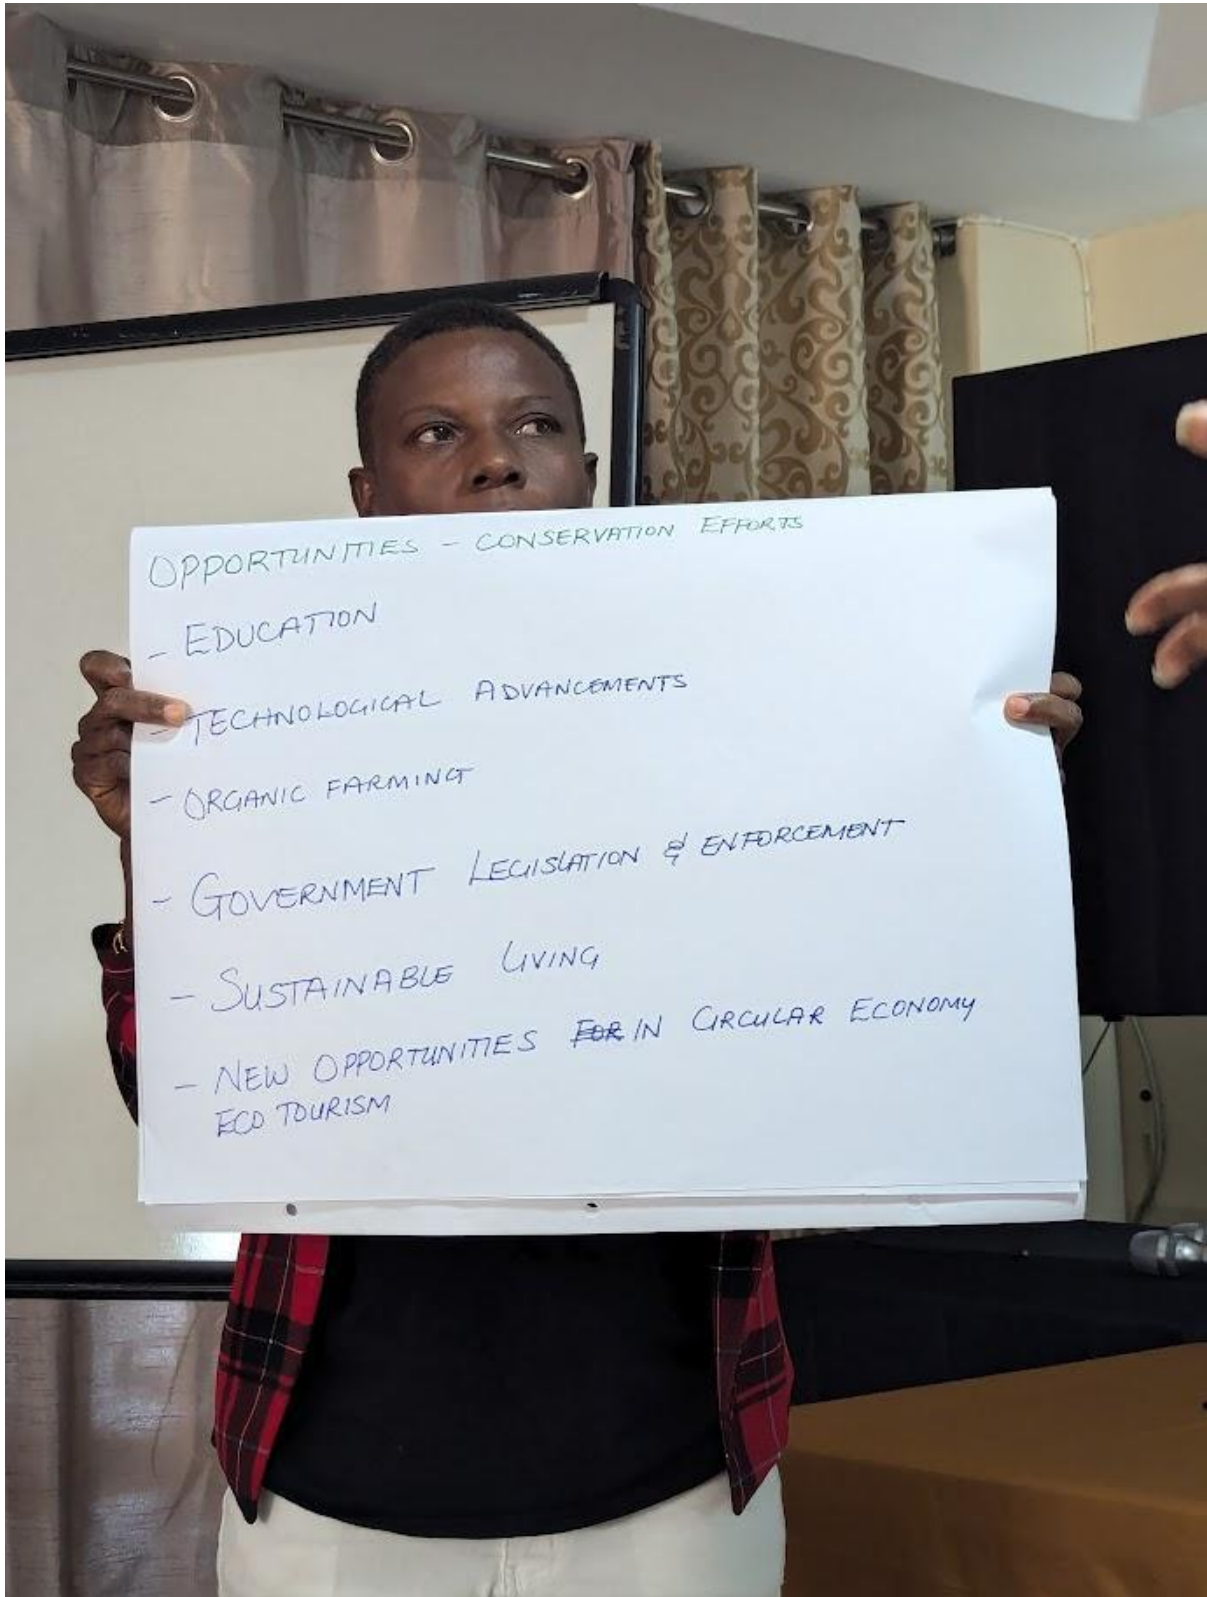 OPPORTUNITIES - CONSERVATION EFFORTS
- EDUCATION
- TECHNOLOGICAL ADVANCEMENTS
- ORGANIC FARMING
- GOVERNMENT LEGISLATION & ENFORCEMENT
- SUSTAINABLE LIVING
- NEW OPPORTUNITIES FOR IN CIRCULAR ECONOMY
ECO TOURISM